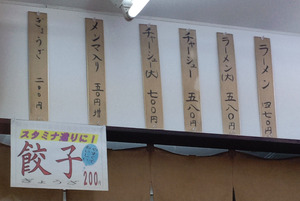 ラーメン 四七〇円
ラーメン(大) 五八〇円
チャーシュー 五八〇円
チャーシュー(大) 七〇〇円
メンマ入り 五〇円増
ぎょうざ 二〇〇円
スタミナ造りに!
餃子
ぎょうざ
200円